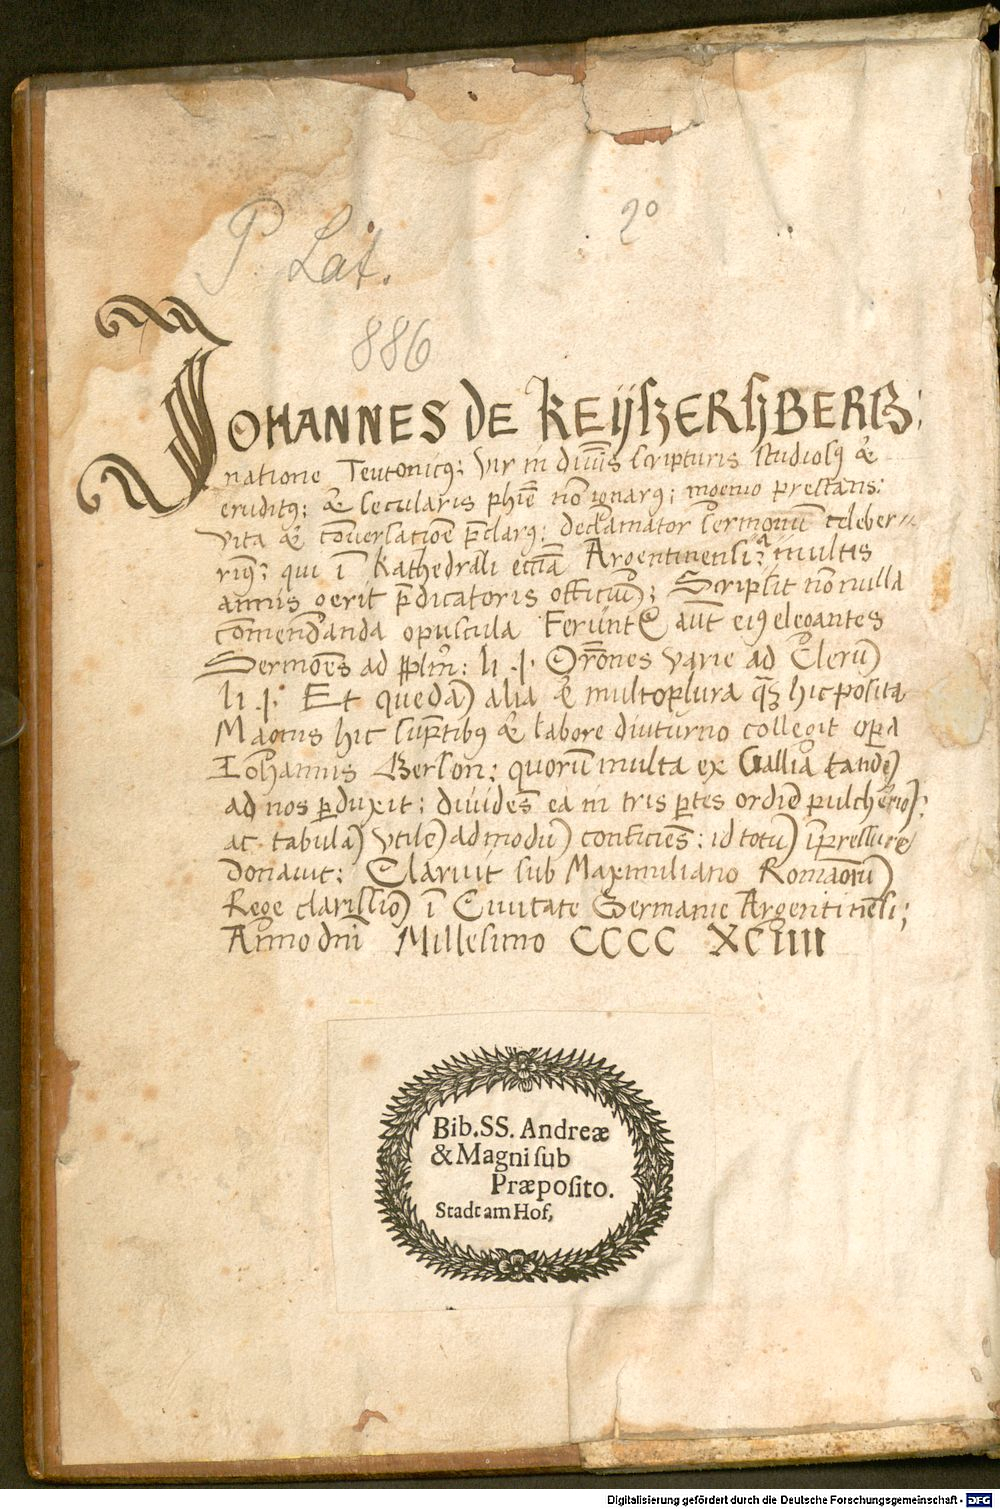 P. Lat.
2°
886
JOHANNES DE KEYSZERSZBERG:
natione Teutonicꝰ: Vir in diuīs scripturis studiosꝰ &
eruditꝰ; & secularis phīe nō ignarꝰ; ingenio prestans:
vita & cōuersatiōe p̄clarꝰ: Declamator sermonum celeber-
riꝰ: qui ī Kathedrali eccīa Argentinensi: a multis
annis gerit p̄dicatoris officiū; Scripsit nonnulla
cōmendanda opuscula Ferūnt aūt eiꝰ elegantes
Sermōes ad li .j. Orōnes varie ad Clerū
li .j. Et quedā alia & multoplura hic posita
Magnis hic sūptibꝰ & labore diuturno collegit opa
Iohannis Gerson: quorū multa ex Gallia tandē
ad nos pduxit: diuidēs ea in tris ptes ordīe
ac tabulā vtilē admodū conficiēs: id totū īpressure
donauit: Claruit sub Maximiliano Romāorū
Rege clarissīo ī Ciuitate Germanie Argentinēsi;
Anno dn̄i Millesimo CCCC XCIIII
Bib. SS. Andreæ
& Magni sub
Præposito.
Stadt am Hof,
Digitalisierung gefördert durch die Deutsche Forschungsgemeinschaft - DFG